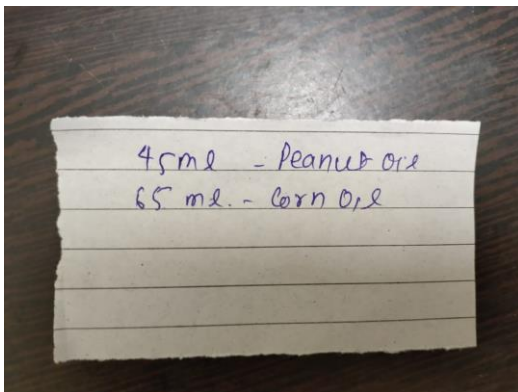 45ml - Peanut Oil
65 ml. - Corn Oil